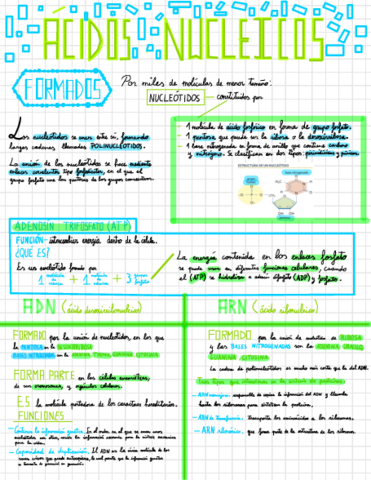 ÁCIDOS NUCLEICOS
FORMADOS
Por miles de moléculas de menor tamaño:
NUCLEÓTIDOS
constituidos por
Los nucleótidos se unen entre sí, formando
largas cadenas, llamadas POLINUCLEÓTIDOS.
La unión de los nucleótidos se hace mediante
enlaces covalentes tipo fosfodiéster, en el que el
grupo fosfato une las pentosas de dos grupos consecutivos.
1 molécula de ácido fosfórico en forma de grupo fosfato.
1 pentosa que puede ser la ribosa o la desoxirribosa.
1 base nitrogenada en forma de anillo que contiene carbono
y nitrógeno. Se clasifican en dos tipos: pirimidínicas y púricas.
ESTRUCTURA DE UN NUCLEÓTIDO
ADENOSÍN TRIFOSFATO (ATP)
FUNCIÓN- intercambiar energía dentro de la célula.
¿QUÉ ES?
Es un nucleótido formado por
1 + 1 + 3 grupos fosfato
La energía contenida en los enlaces fosfato
se puede usar en diferentes funciones celulares. Cuando
el (ATP) se hidroliza a adenín difosfato (ADP) y fosfato.
ADN (ácido desoxirribonucleico)
FORMADO por la unión de nucleótidos, en los que
la PENTOSA es la DESOXIRRIBOSA
BASES NITROGENADAS son la ADENINA, TIMINA, GUANINA, CITOSINA.
FORMA PARTE en las células eucariotas,
de sus cromosomas y orgánulos celulares.
ES la molécula portadora de los caracteres hereditarios.
FUNCIONES
- Contiene la información genética.
- Capacidad de duplicación. El ADN es la única molécula de los
ARN (ácido ribonucleico)
FORMADO por la unión de nucleótidos de RIBOSA
y las BASES NITROGENADAS son la ADENINA URACILO
GUANINA CITOSINA
La cadena de polinucleótidos es mucho más corta que la del ADN.
Tres tipos que intervienen en la síntesis de proteínas:
- ARN mensajero: responsable de copiar la información del ADN y llevarla
hasta los ribosomas para sintetizar la proteína.
- ARN de transferencia: transporta los aminoácidos a los ribosomas.
- ARN ribosómico: que forma parte de la estructura de los ribosomas.